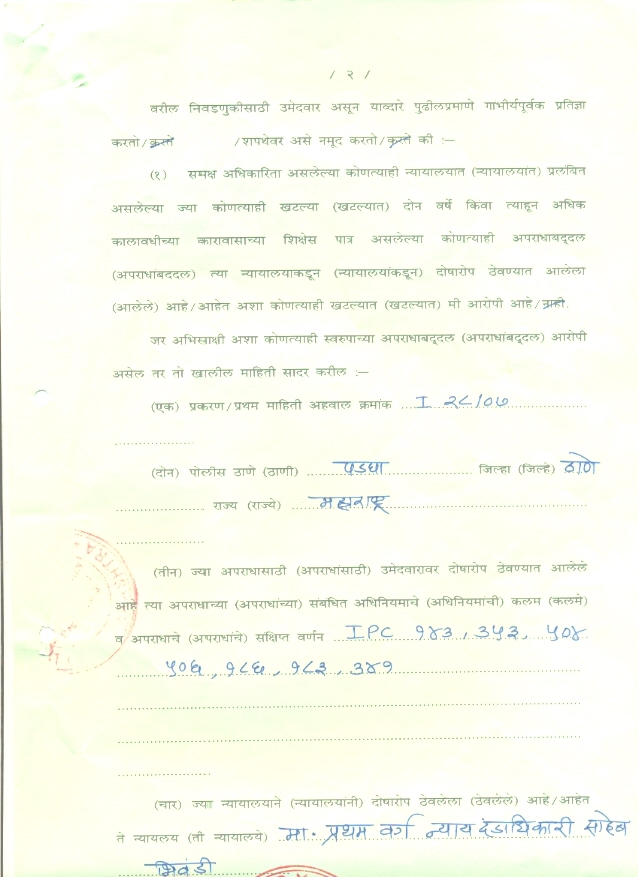 / २ /
वरील निवडणुकीसाठी उमेदवार असून याव्दारे पुढीलप्रमाणे गाभीर्यपूर्वक प्रतिज्ञा
करतो/करते /शपथेवर असे नमूद करतो/करते की :—
(१) सक्षम अधिकारिता असलेल्या कोणत्याही न्यायालयात (न्यायालयांत) प्रलंबित
असलेल्या ज्या कोणत्याही खटल्या (खटल्यात) दोन वर्षे किंवा त्याहून अधिक
कालावधीच्या कारावासाच्या शिक्षेस पात्र असलेल्या कोणत्याही अपराधाबद्दल
(अपराधाबददल) त्या न्यायालयाकडून (न्यायालयांकडून) दोषारोप ठेवण्यात आलेला
(आलेले) आहे/आहेत अशा कोणत्याही खटल्यात (खटल्यात) मी आरोपी आहे/नाही.
जर अभिसाक्षी अशा कोणत्याही स्वरुपाच्या अपराधाबद्दल (अपराधांबद्दल) आरोपी
असेल तर तो खालील माहिती सादर करील :—
(एक) प्रकरण/प्रथम माहिती अहवाल क्रमांक ... I २८/०७
(दोन) पोलीस ठाणे (ठाणी) ... पडघा ... जिल्हा (जिल्हे) ठाणे
... राज्य (राज्ये) ... महाराष्ट्र
(तीन) ज्या अपराधासाठी (अपराधांसाठी) उमेदवारावर दोषारोप ठेवण्यात आलेले
आहे त्या अपराधाच्या (अपराधांच्या) संबंधित अधिनियमाचे (अधिनियमाची) कलम (कलमे)
व अपराधाचे (अपराधांचे) संक्षिप्त वर्णन ... IPC १४३, ३५३, ५०४
५०६, १८६, १८३, ३४१
(चार) ज्या न्यायालयाने (न्यायालयांनी) दोषारोप ठेवलेला (ठेवलेले) आहे/आहेत
ते न्यायलय (ती न्यायालये) .. मा. प्रथम वर्ग न्याय दंडाधिकारी साहेब
भिवंडी